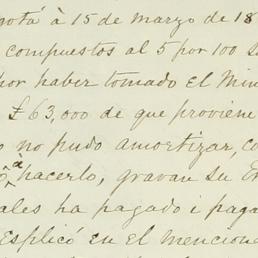 gotá à 15 de marzo de 18
compuestos al 5 por 100 s
por haber tomado el Min
£63,000 de que proviene
no pudo amortizar, co
à hacerlo, gravan su Er
ales ha pagado i paga
esplicó en el menciona